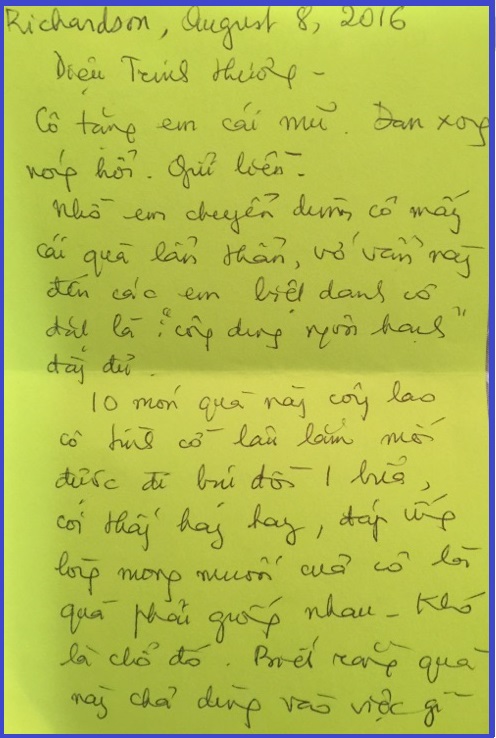 Richardson, August 8, 2016
Diệu Trinh thương -
Cô tặng em cái mũ. Đan xong
nóng hổi. Gửi liền.
Nhờ em chuyển dùm cô mấy
cái quà lẩn thẩn, vớ vẩn này
đến các em biệt danh cô
đặt là "công dung ngôn hạnh"
đầy đủ.
10 món quà này công lao
cô tính cố lâu lắm mới
được đi bui đời 1 bữa,
coi thấy hay hay, đáp ứng
lòng mong muốn của cô là
quà phải giống nhau - Khó
là chỗ đó. Biết rằng quà
này chả dùng vào việc gì